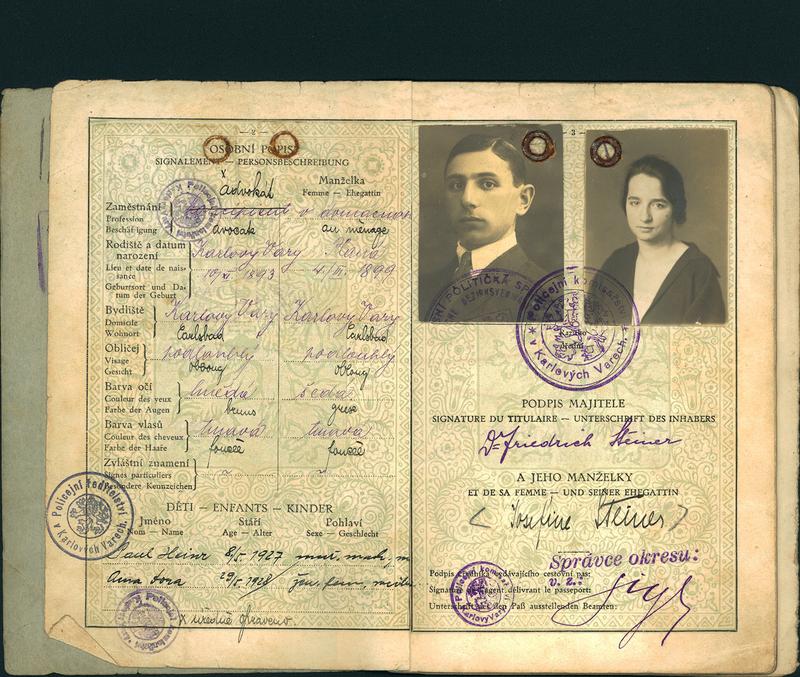 — 2 —
OSOBNÍ POPIS
SIGNALEMENT — PERSONSBESCHREIBUNG
x
advokát
Manželka
Femme — Ehegattin
Zaměstnání
Profession
Beschäftigung
v domácnosti
avocat
au ménage
Rodiště a datum
narození
Lieu et date de nais-
sance
Geburtsort und Da-
tum der Geburt
Karlovy Vary
1893
1899
Bydliště
Domicile
Wohnort
Karlovy Vary Karlovy Vary
Carlsbad Carlsbad
Obličej
Visage
Gesicht
podlouhlý podlouhlý
oblong oblong
Barva očí
Couleur des yeux
Farbe der Augen
hnědá šedá
bruns grise
Barva vlasů
Couleur des cheveux
Farbe der Haare
tmavá tmavá
foncée foncée
Zvláštní znamení
Signes particuliers
Besondere Kennzeichen
DĚTI — ENFANTS — KINDER
Jméno Stáří Pohlaví
Nom — Name Age — Alter Sexe — Geschlecht
Paul Heinz 8/5 1927
Anna Dora 29/5 1928
x úředně opraveno.
Policejní ředitelství
v Karlových Varech.
— 3 —
Policejní komisařství
v Karlových Varech.
PODPIS MAJITELE
SIGNATURE DU TITULAIRE — UNTERSCHRIFT DES INHABERS
Dr Friedrich Steiner
A JEHO MANŽELKY
ET DE SA FEMME — UND SEINER EHEGATTIN
Josefine Steiner
Správce okresu:
v. z.:
Podpis úředníka vydávajícího cestovní pas:
Signature de l'agent délivrant le passeport:
Unterschrift des den Paß ausstellenden Beamten: